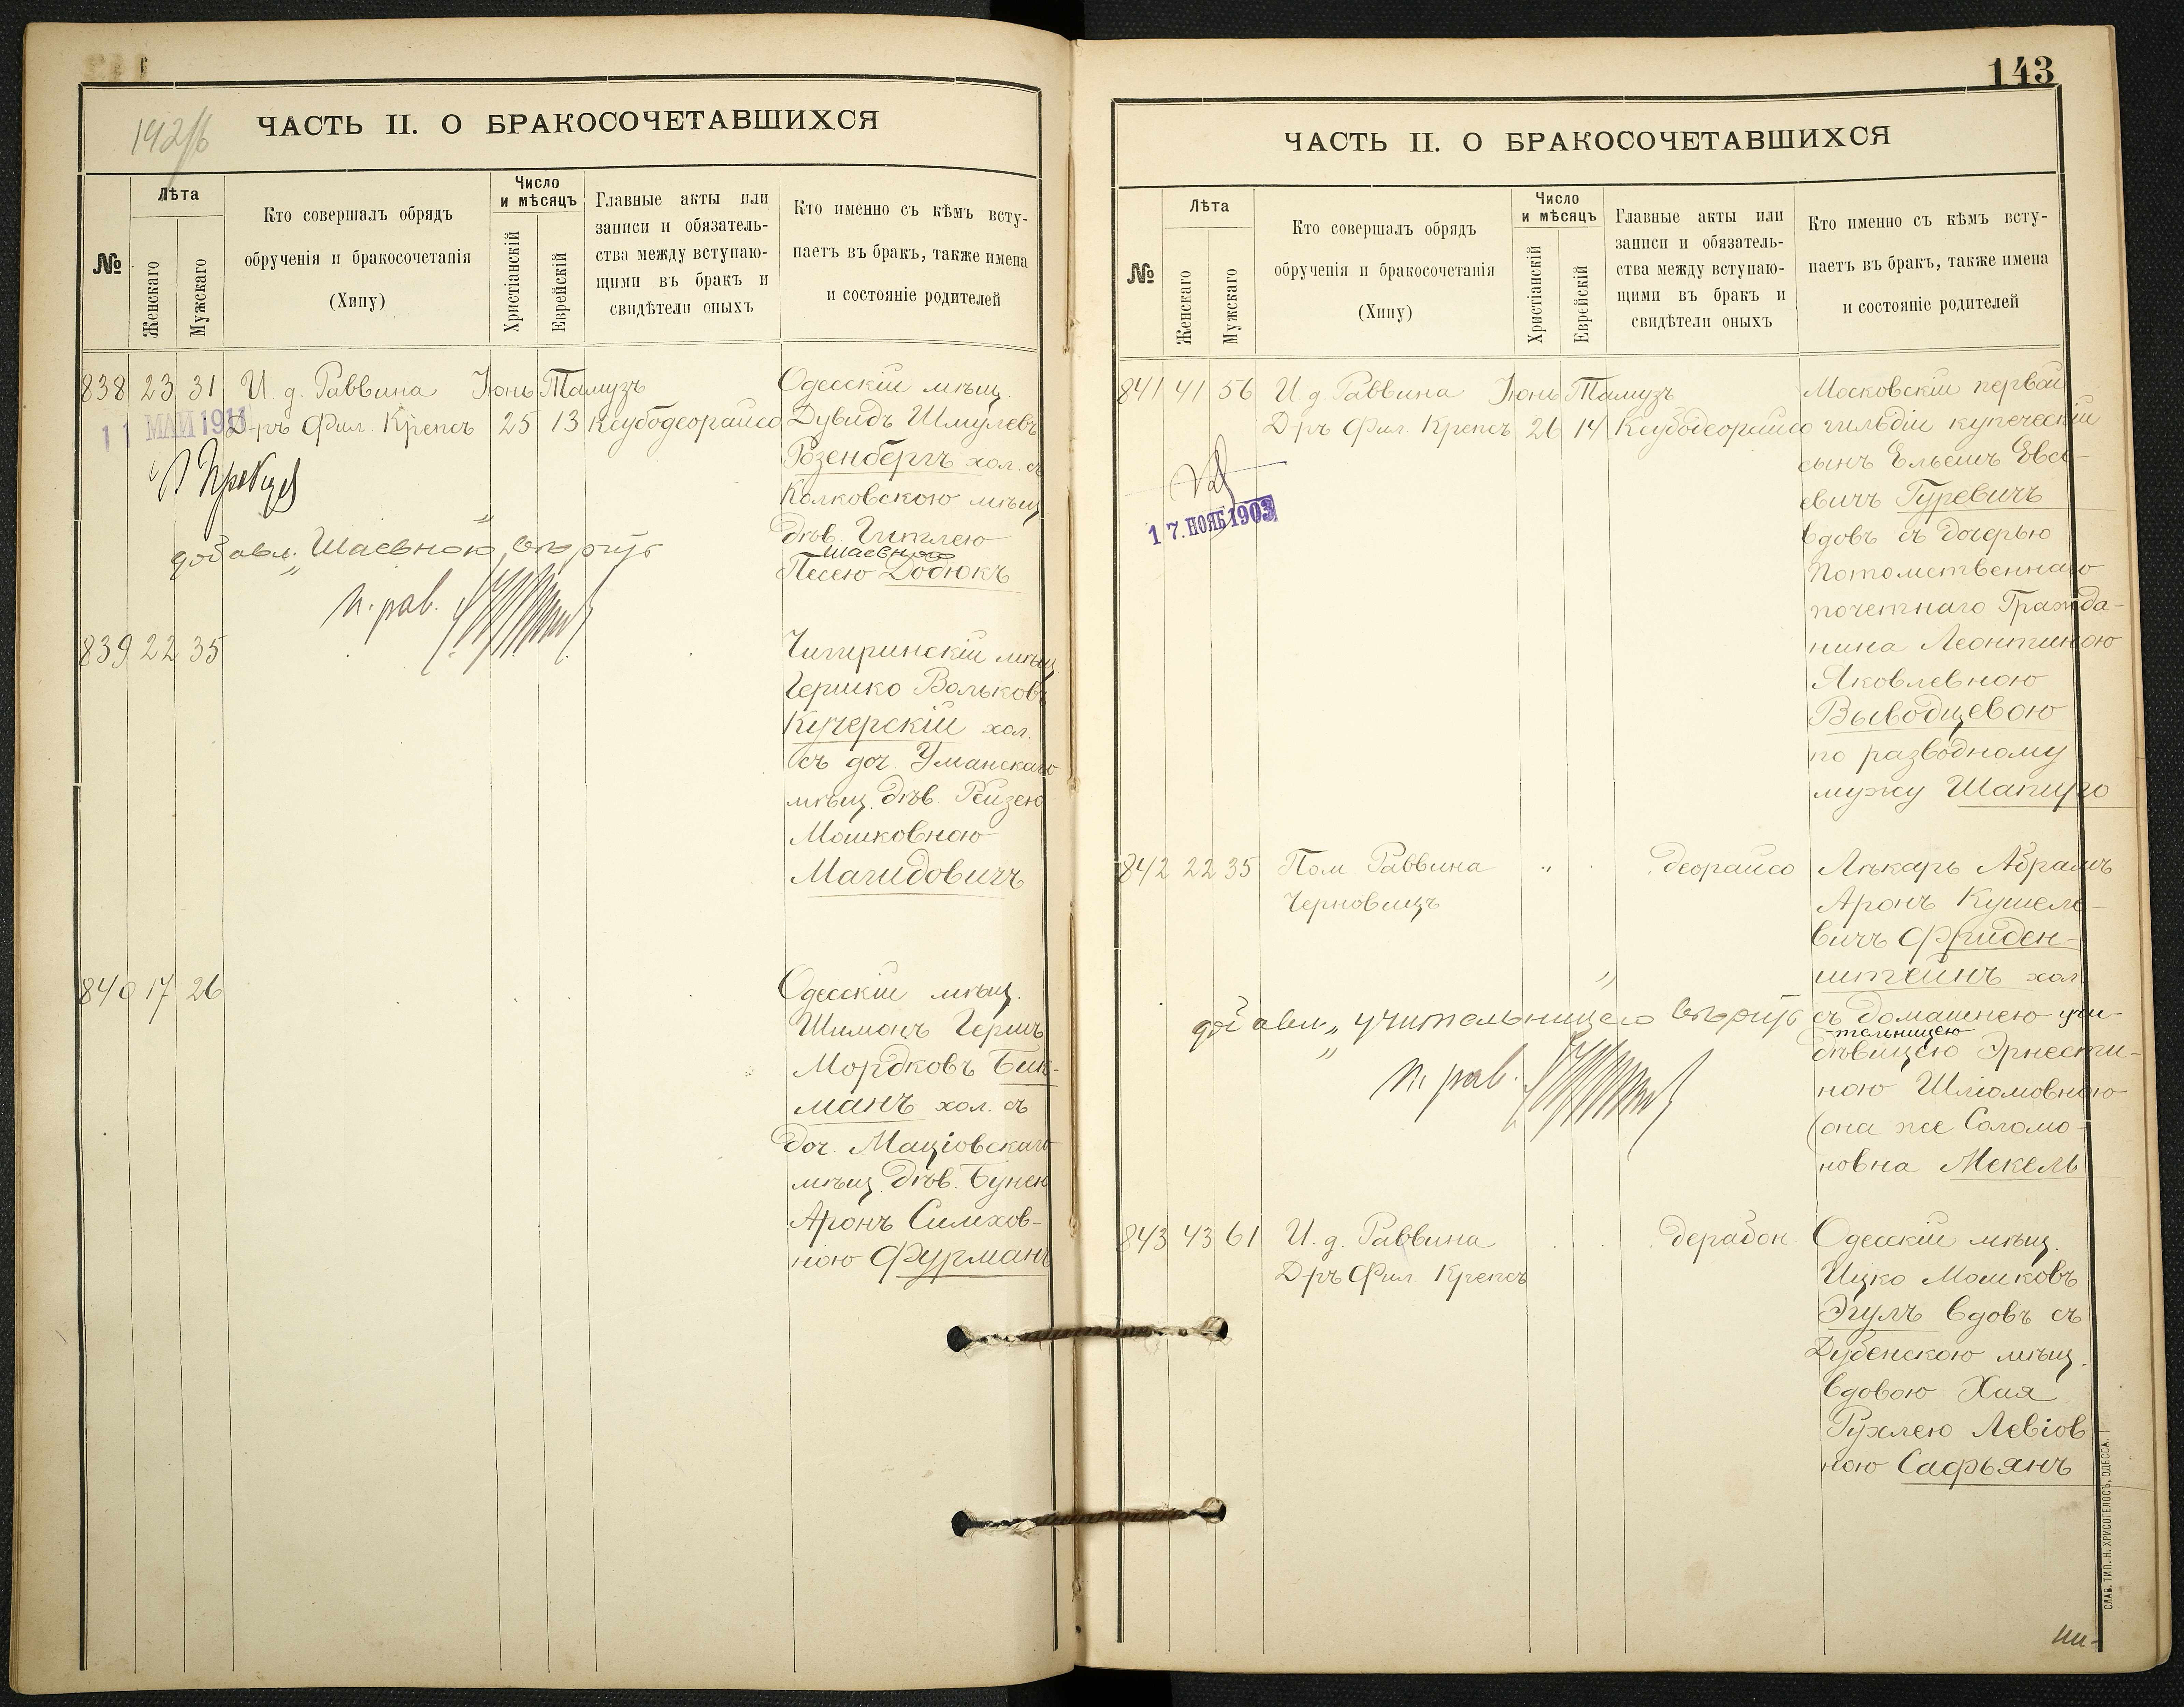 142/б
ЧАСТЬ II. О БРАКОСОЧЕТАВШИХСЯ
№
Лѣта
Женскаго
Мужскаго
Кто совершалъ обрядъ
обрученія и бракосочетанія
(Хипу)
Число
и мѣсяцъ
Христіанскій
Еврейскій
Главные акты или
записи и обязатель-
ства между вступаю-
щими въ бракъ и
свидѣтели оныхъ
Кто именно съ кѣмъ всту-
паетъ въ бракъ, также имена
и состояніе родителей
838 23 31 И. д. Раввина Іюнь Тамузъ
Д-ръ Фил. Крепсъ 25 13 Ксубодеорайсо
11 МАЙ 1911
Одесскій мѣщ.
Дувидъ Шмулевъ
Розенбергъ хол. съ
Колковскою мѣщ
дѣв. Гитлею
Шаевною
Песею Додюкъ
добавл. „Шаевною„ вѣрно
п. рав.
839 22 35
Чигиринскій мѣщ
Гершко Вольковъ
Кучерскій хол.
съ доч. Уманскаго
мѣщ. дѣв. Рейзею
Мошковною
Магидовичъ
840 17 26
Одесскій мѣщ.
Шимонъ Гершъ
Мордковъ Бик-
манъ хол. съ
доч. Маціовскаго
мѣщ. дѣв. Бунею
Аронъ Симхов-
ною Фурманъ
143
ЧАСТЬ II. О БРАКОСОЧЕТАВШИХСЯ
№
Лѣта
Женскаго
Мужскаго
Кто совершалъ обрядъ
обрученія и бракосочетанія
(Хипу)
Число
и мѣсяцъ
Христіанскій
Еврейскій
Главные акты или
записи и обязатель-
ства между вступаю-
щими въ бракъ и
свидѣтели оныхъ
Кто именно съ кѣмъ всту-
паетъ въ бракъ, также имена
и состояніе родителей
841 41 56 И. д. Раввина Іюнь Тамузъ
Д-ръ Фил. Крепсъ 26 14 Ксубодеорайсо
17. НОЯБ 1903
Московскій первой
гильдіи купеческій
сынъ Ельешъ Евсе-
евичъ Гуревичъ
вдовъ съ дочерью
Потомственнаго
почетнаго Гражда-
нина Леонтиною
Яковлевною
Выводцевою
по разводному
мужу Шапиро
842 22 35 Пом. Раввина „ деорайсо
Черновицъ
Лѣкарь Абрамъ
Аронъ Кушеле-
вичъ Фрайден-
штейнъ хол.
съ домашнею учи-
-тельницею
дѣвицею Эрнести-
ною Шліомовною
(она же Соломо-
новна Мекель
добавл. „учительницею„
п. рав.
843 43 61 И. д. Раввина дерабон.
Д-ръ Фил. Крепсъ
Одесскій мѣщ.
Ицко Мошковъ
Эгулъ вдовъ съ
Дубенскою мѣщ.
вдовою Хая
Рухлею Левіов
ною Сафьянъ
СЛАВ. ТИП. Н. ХРИСОГЕЛОСЪ, ОДЕССА.